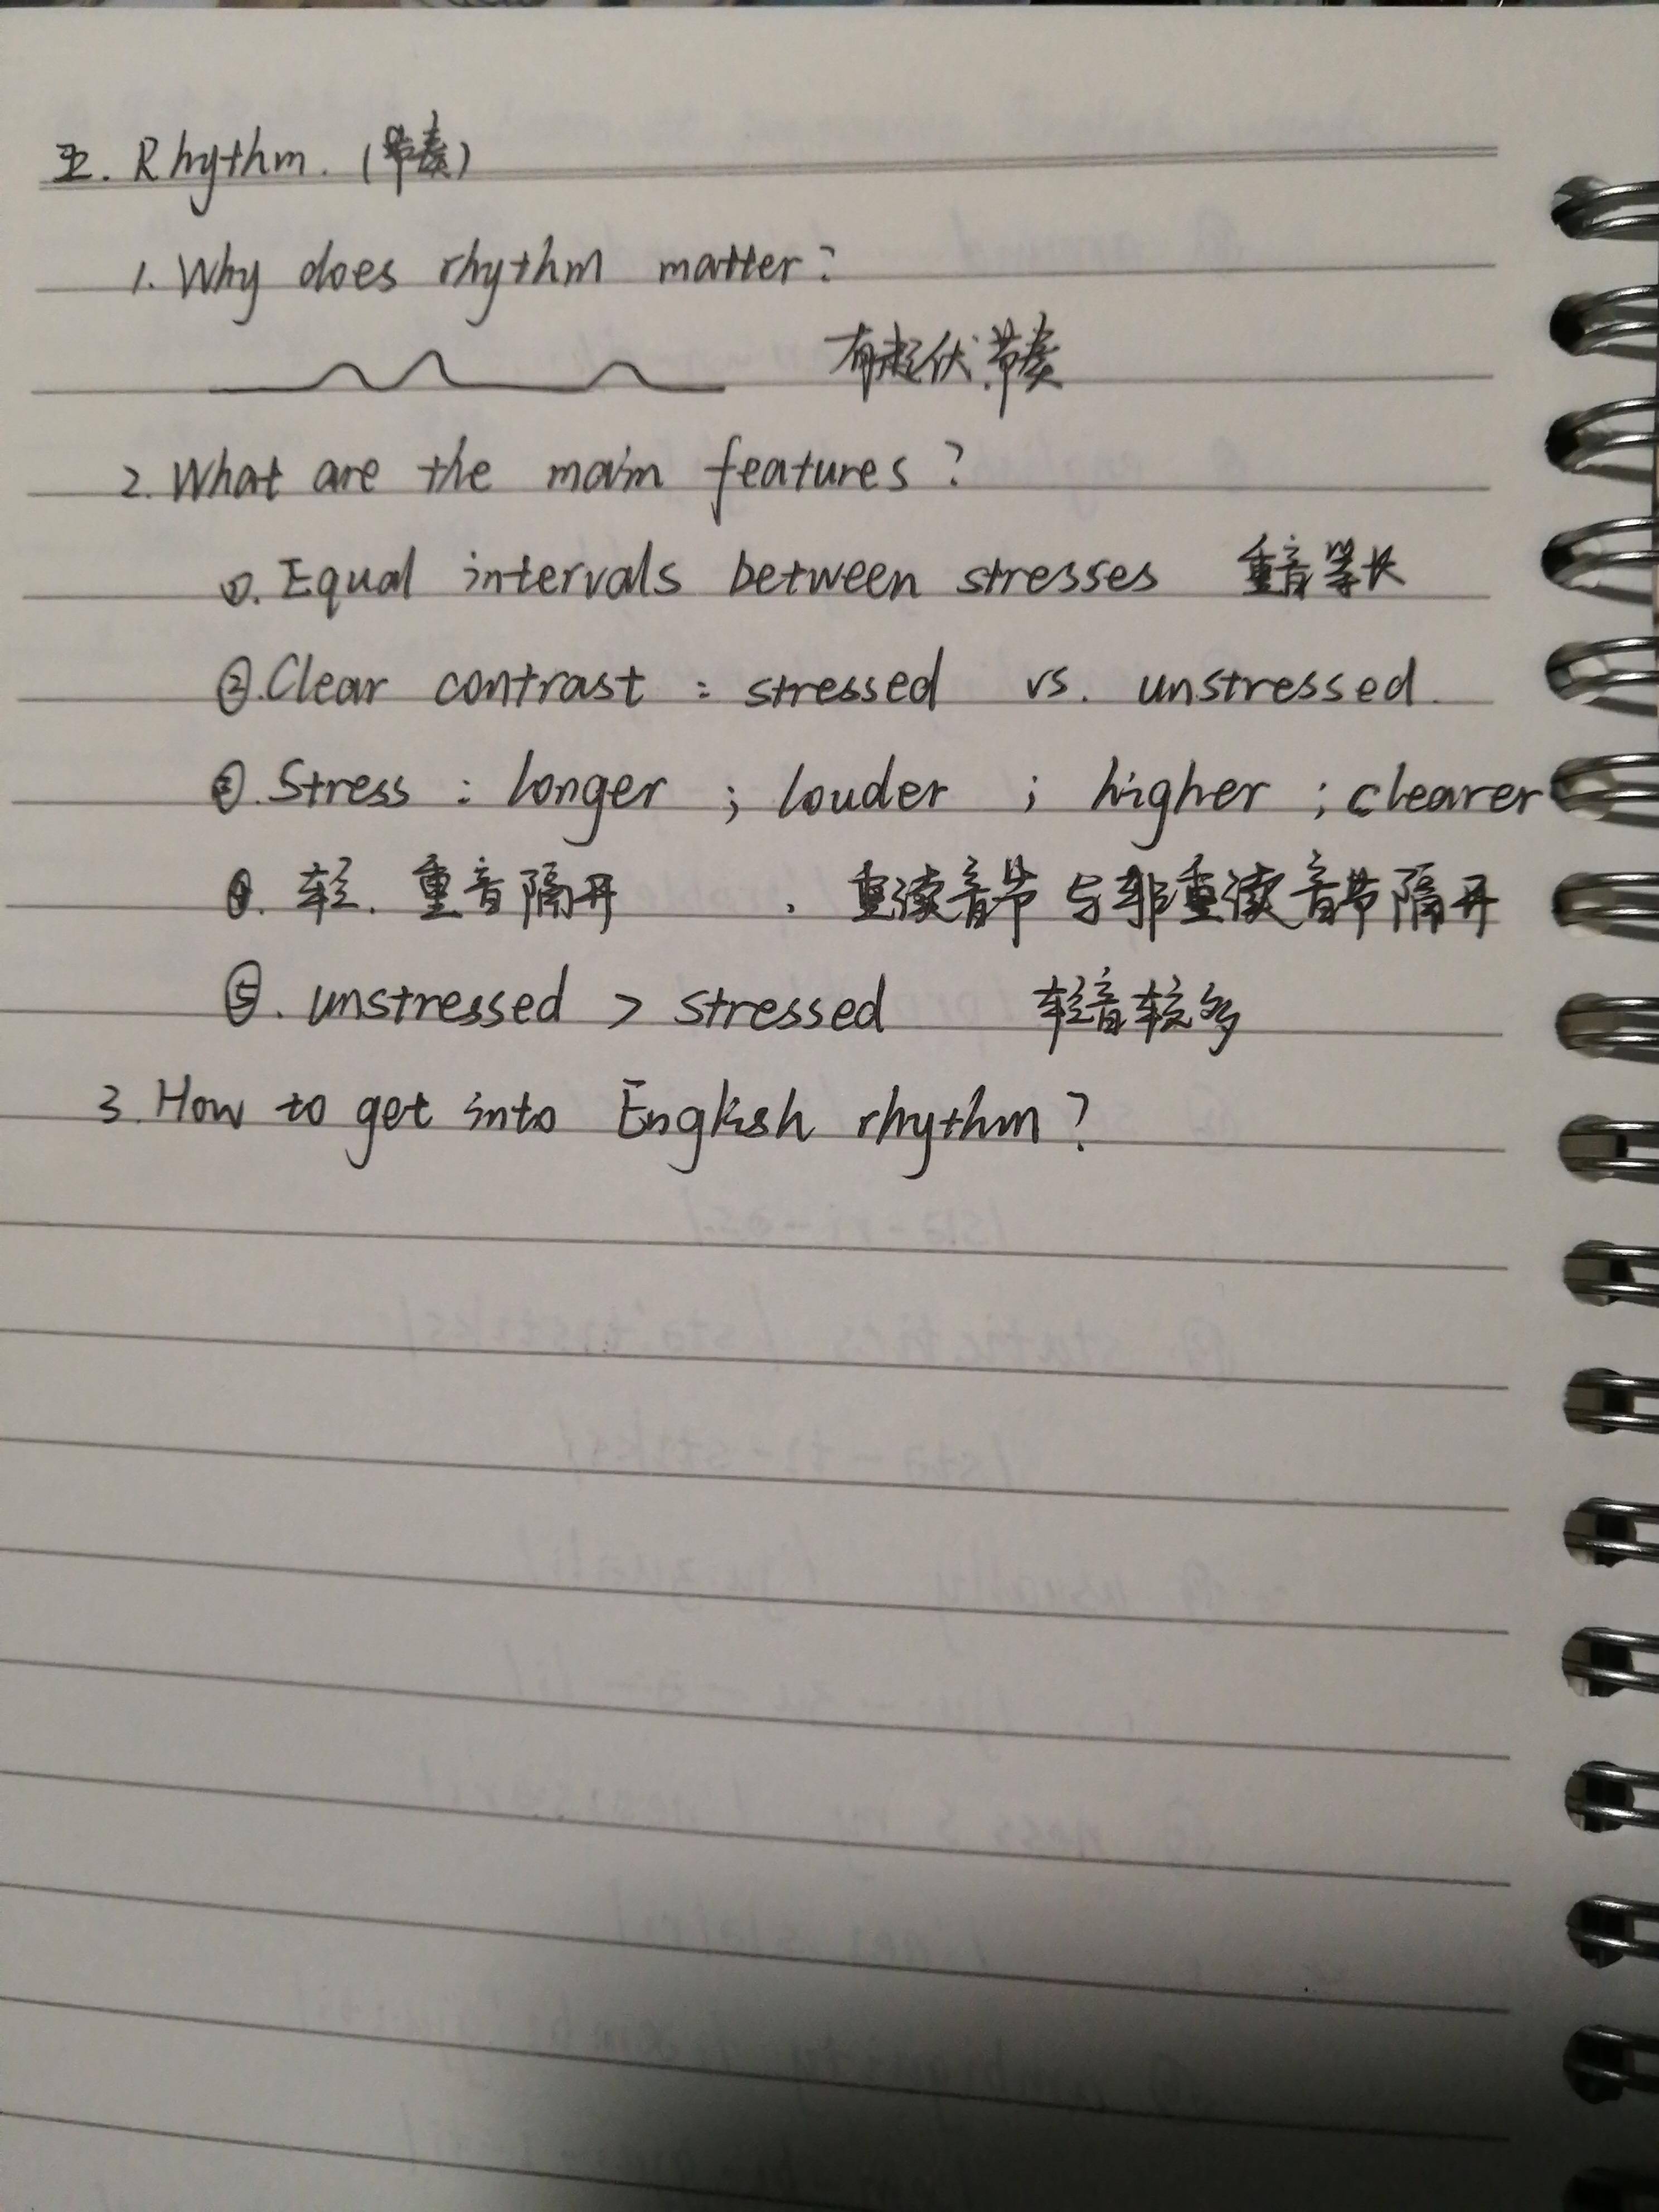 五. Rhythm. (节奏)
1. Why does rhythm matter?
有起伏.节奏
2. What are the main features?
①. Equal intervals between stresses 重音等长
②. Clear contrast : stressed vs. unstressed.
③. Stress : longer ; louder ; higher ; clearer
④. 轻. 重音隔开 . 重读音节与非重读音节隔开
⑤. unstressed > stressed 轻音较多
3. How to get into English rhythm?